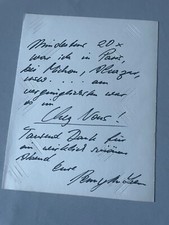 Mindestens 20 x
war ich in Paris,
bei
usw. . . . . am
vergnüglichsten war
es im
"Chez Nous"!
Tausend Dank für
den wirklich schönen
Abend
Eure